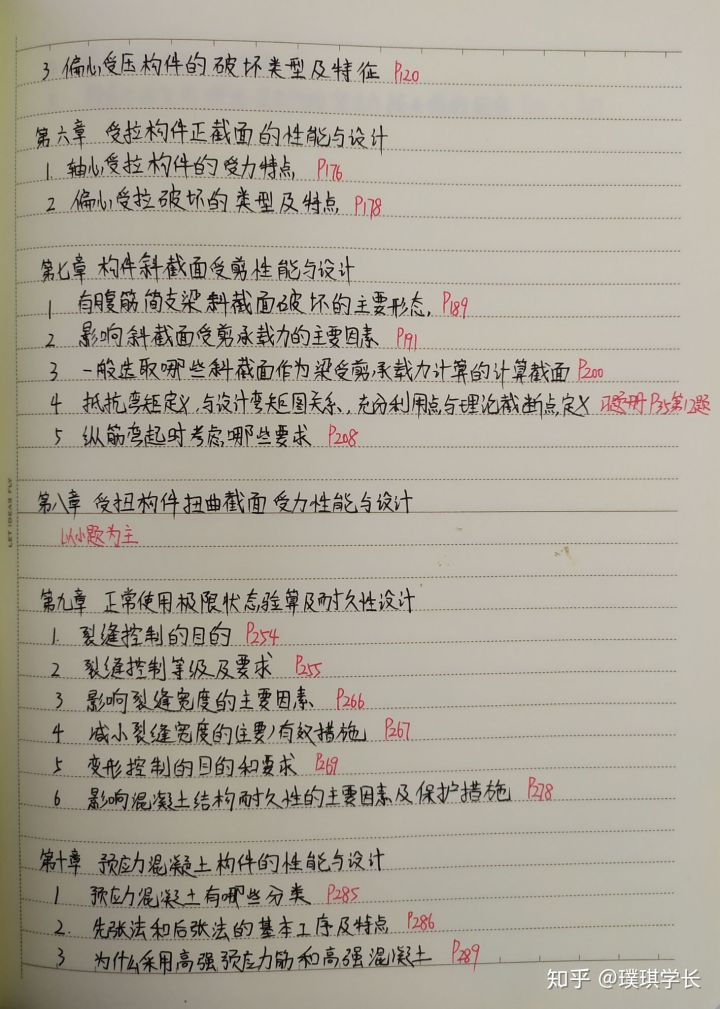 3 偏心受压构件的破坏类型及特征 P120
第六章 受拉构件正截面的性能与设计
1. 轴心受拉构件的受力特点 P176
2 偏心受拉破坏的类型及特点 P178
第七章 构件斜截面受剪性能与设计
1 有腹筋简支梁斜截面破坏的主要形态, P189
2 影响斜截面受剪承载力的主要因素 P191
3 一般选取哪些斜截面作为梁受剪承载力计算的计算截面 P200
4 抵抗弯矩定义,与设计弯矩图关系,充分利用点与理论截断点定义 习题册P35第12题
5 纵筋弯起时考虑哪些要求 P208
第八章 受扭构件扭曲截面受力性能与设计
以小题为主
LET IDEAS FLY
第九章 正常使用极限状态验算及耐久性设计
1. 裂缝控制的目的 P254
2 裂缝控制等级及要求 P255
3 影响裂缝宽度的主要因素 P266
4 减小裂缝宽度的(主要)有效措施 P267
5 变形控制的目的和要求 P269
6 影响混凝土结构耐久性的主要因素及保护措施 P278
第十章 预应力混凝土构件的性能与设计
1 预应力混凝土有哪些分类 P285
2. 先张法和后张法的基本工序及特点 P286
3 为什么采用高强预应力筋和高强混凝土 P289
知乎 @璞琪学长